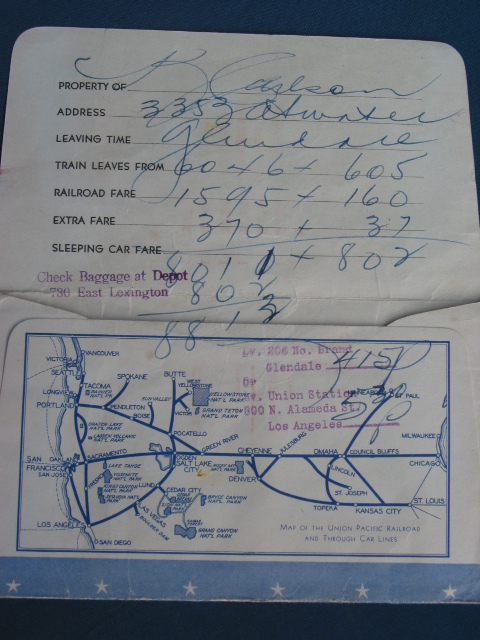 PROPERTY OF Carlson
ADDRESS 3353 Atwater
LEAVING TIME Glendale
TRAIN LEAVES FROM 6046 + 605
RAILROAD FARE 1595 + 160
EXTRA FARE 370 + 37
SLEEPING CAR FARE 8011 + 802
Check Baggage at Depot
780 East Lexington
802
8813
Lv. 206 No. Brand
Glendale 415
Or
Lv. Union Station
800 N. Alameda St.
Los Angeles
VANCOUVER
VICTORIA
SEATTLE
TACOMA
RAINIER NAT'L PARK
LONGVIEW
PORTLAND
SPOKANE
PENDLETON
SUN VALLEY
BOISE
BUTTE
WEST YELLOWSTONE
YELLOWSTONE NAT'L PARK
VICTOR
GRAND TETON NAT'L PARK
POCATELLO
CRATER LAKE NAT'L PARK
LASSEN VOLCANIC NAT'L PARK
SACRAMENTO
OAKLAND
SAN FRANCISCO
SAN JOSE
LAKE TAHOE
YOSEMITE NAT'L PARK
FRESNO
KINGS CANYON NAT'L PARK
SEQUOIA NAT'L PARK
OGDEN
SALT LAKE CITY
GREEN RIVER
LUND
CEDAR CITY
BRYCE CANYON NAT'L PARK
GRAND CANYON NAT'L PARK
LAS VEGAS
BOULDER DAM
LOS ANGELES
SAN DIEGO
CHEYENNE
JULESBURG
ROCKY MT. NAT'L PARK
DENVER
OMAHA
COUNCIL BLUFFS
LINCOLN
ST. JOSEPH
TOPEKA
KANSAS CITY
ST. LOUIS
ST. PAUL
MILWAUKEE
CHICAGO
MAP OF THE UNION PACIFIC RAILROAD
AND THROUGH CAR LINES